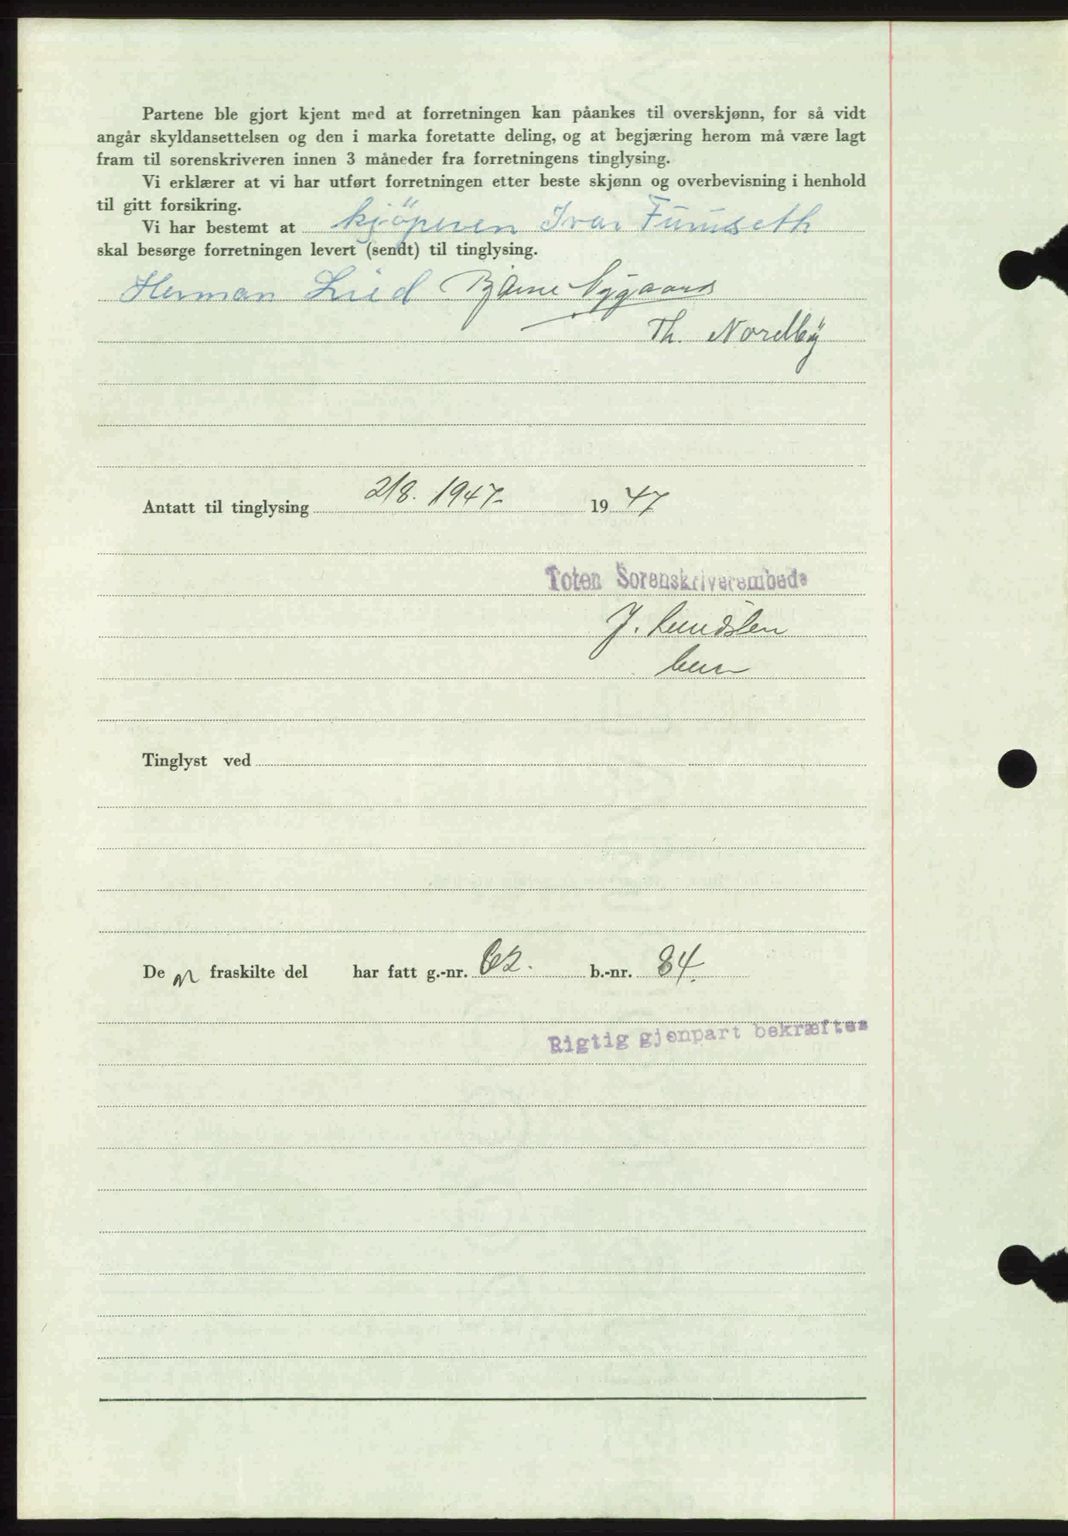 Partene ble gjort kjent med at forretningen kan påankes til overskjønn, for så vidt
angår skyldansettelsen og den i marka foretatte deling, og at begjæring herom må være lagt
fram til sorenskriveren innen 3 måneder fra forretningens tinglysing.
Vi erklærer at vi har utført forretningen etter beste skjønn og overbevisning i henhold
til gitt forsikring.
Vi har bestemt at kjöperen Ivar Furuseth
skal besørge forretningen levert (sendt) til tinglysing.
Herman Lied Bjarne Nygaard
Th. Nordby
Antatt til tinglysing 2/8. 1947- 19 47
Toten Sorenskriverembede
J. Lundsten
De n fraskilte del har fatt g.-nr. 62. b.-nr. 84.
Tinglyst ved
Rigtig gjenpart bekræftes